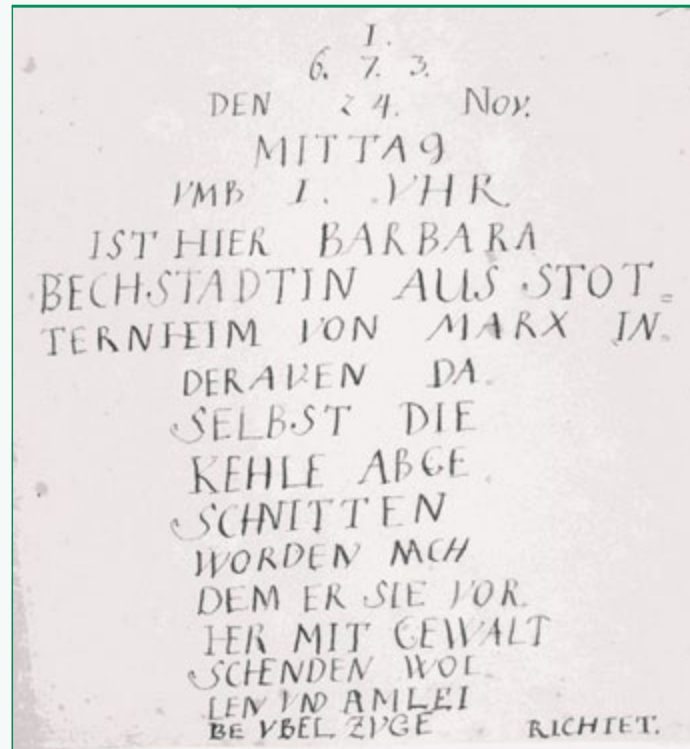 I.
6. 7. 3.
DEN 24. Nov.
MITTAG
VMB I. VHR
IST HIER BARBARA
BECHSTADTIN AUS STOT=
TERNHEIM VON MARX IN.
DERAVEN DA.
SELBST DIE
KEHLE ABGE.
SCHNITTEN
WORDEN NACH
DEM ER SIE VOR.
HER MIT GEWALT
SCHENDEN WOL.
LEN VND AM LEI
BE VBEL ZVGE RICHTET.